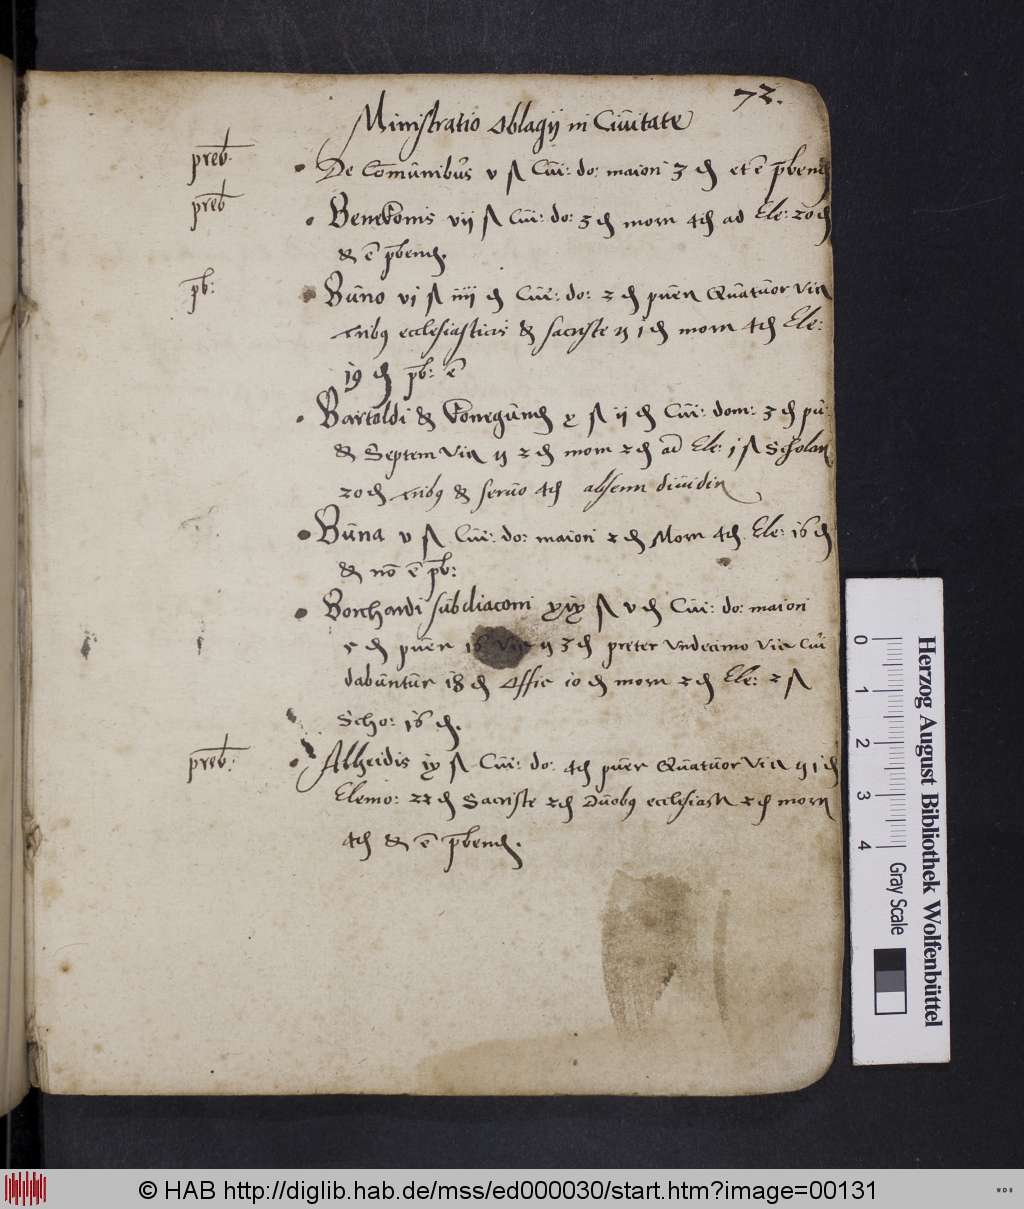 72.
Ministratio oblagij in Ciuitate
preb. De Comunibus v ß Cui: do: maiori 3 ₰ et e prbend
preb Benekonis vij ß Cui: do: 3 ₰ morn 4₰ ad Ele: 20₰
& e prbend.
pb: Buno vj ß iiij ₰ Cui: do: 2 ₰ puer Quatuor vic
tribus ecclesiasticis & sacriste ij i₰ morn 4₰ Ele:
19 ₰ pb: e
Bartoldi & konegund x ß ij ₰ Cui: dom: 3 ₰ pu:
& Septem vic ij 2 ₰ morn 2₰ ad Ele: j ß Scholar
20₰ & seruo 4₰ absenn diuidin
Buna v ß Cui: do: maiori 2 ₰ Morn 4₰ Ele: 16 ₰
& no e pb:
Borchardi subdiaconi xix ß v ₰ Cui: do: maiori
5 ₰ puer 16 ij 3 ₰ preter vndecimo vic Cui
dabuntur 18 ₰ Offic 10 ₰ morn 2₰ Ele: 2 ß
Scho: 16 ₰.
preb: Alheidis ix ß Cui: do: 4₰ puer Quatuor vic ij i₰
Elemo: 22 ₰ Sacriste 2₰ Duobus ecclesiast 2₰ morn
4₰ & e prbend.
Herzog August Bibliothek Wolfenbüttel
0 1 2 3 4 Gray Scale
© HAB http://diglib.hab.de/mss/ed000030/start.htm?image=00131